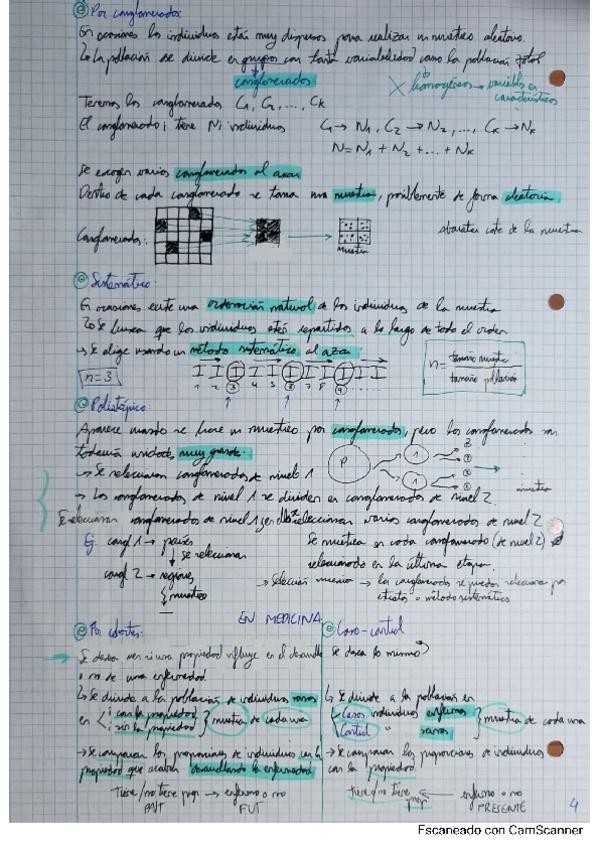 Por conglomerados:
En ocasiones los individuos están muy dispersos para realizar un muestreo aleatorio.
La población se divide en grupos con tanta variabilidad como la población total
conglomerados
homogéneos → variables en características
Tenemos los conglomerados C1, C2, ..., CK
El conglomerado i tiene Ni individuos C1 → N1, C2 → N2, ..., CK → NK
N = N1 + N2 + ... + NK
Se escogen varios conglomerados al azar
Dentro de cada conglomerado se toma una muestra, posiblemente de forma aleatoria
Conglomerados: abaratar coste de la muestra
Muestra
Sistemático:
En ocasiones existe una ordenación natural de los individuos de la muestra
Se busca que los individuos estén repartidos a lo largo de todo el orden
→ Se elige usando un método sistemático al azar
n = tamaño muestra / tamaño población
n=3
1 2 3 4 5
Polietápico:
Aparece cuando se hace un muestreo por conglomerados, pero los conglomerados son
todavía unidades muy grandes.
P 1 2
→ Se seleccionan conglomerados de nivel 1
muestra
→ Los conglomerados de nivel 1 se dividen en conglomerados de nivel 2.
Se seleccionan conglomerados de nivel 1, seleccionan varios conglomerados de nivel 2
Ej. congl 1 → países
↓ se seleccionan
congl 2 → regiones
muestreo
Se muestrea en cada conglomerado (de nivel 2)
seleccionado en la última etapa.
→ Selección → Los conglomerados se pueden seleccionar por
estratos o método sistemático
EN MEDICINA
Por cohortes:
→ Se desea ver si una propiedad influye en el desarrollo
o no de una enfermedad.
↳ Se divide a la población de individuos sanos
en { con la propiedad
sin la propiedad } muestra de cada una
→ Se comparan las proporciones de individuos con la
propiedad que acaban desarrollando la enfermedad
tiene/no tiene prop → enfermo o no
ANT FUT
Caso-control
Se desea lo mismo
↳ Se divide a la población en
Casos individuos enfermos
Control " sanos } muestra de cada una
→ Se comparan las proporciones de individuos
con la propiedad.
tiene/no tiene prop ← enfermo o no
PRESENTE
4
Escaneado con CamScanner